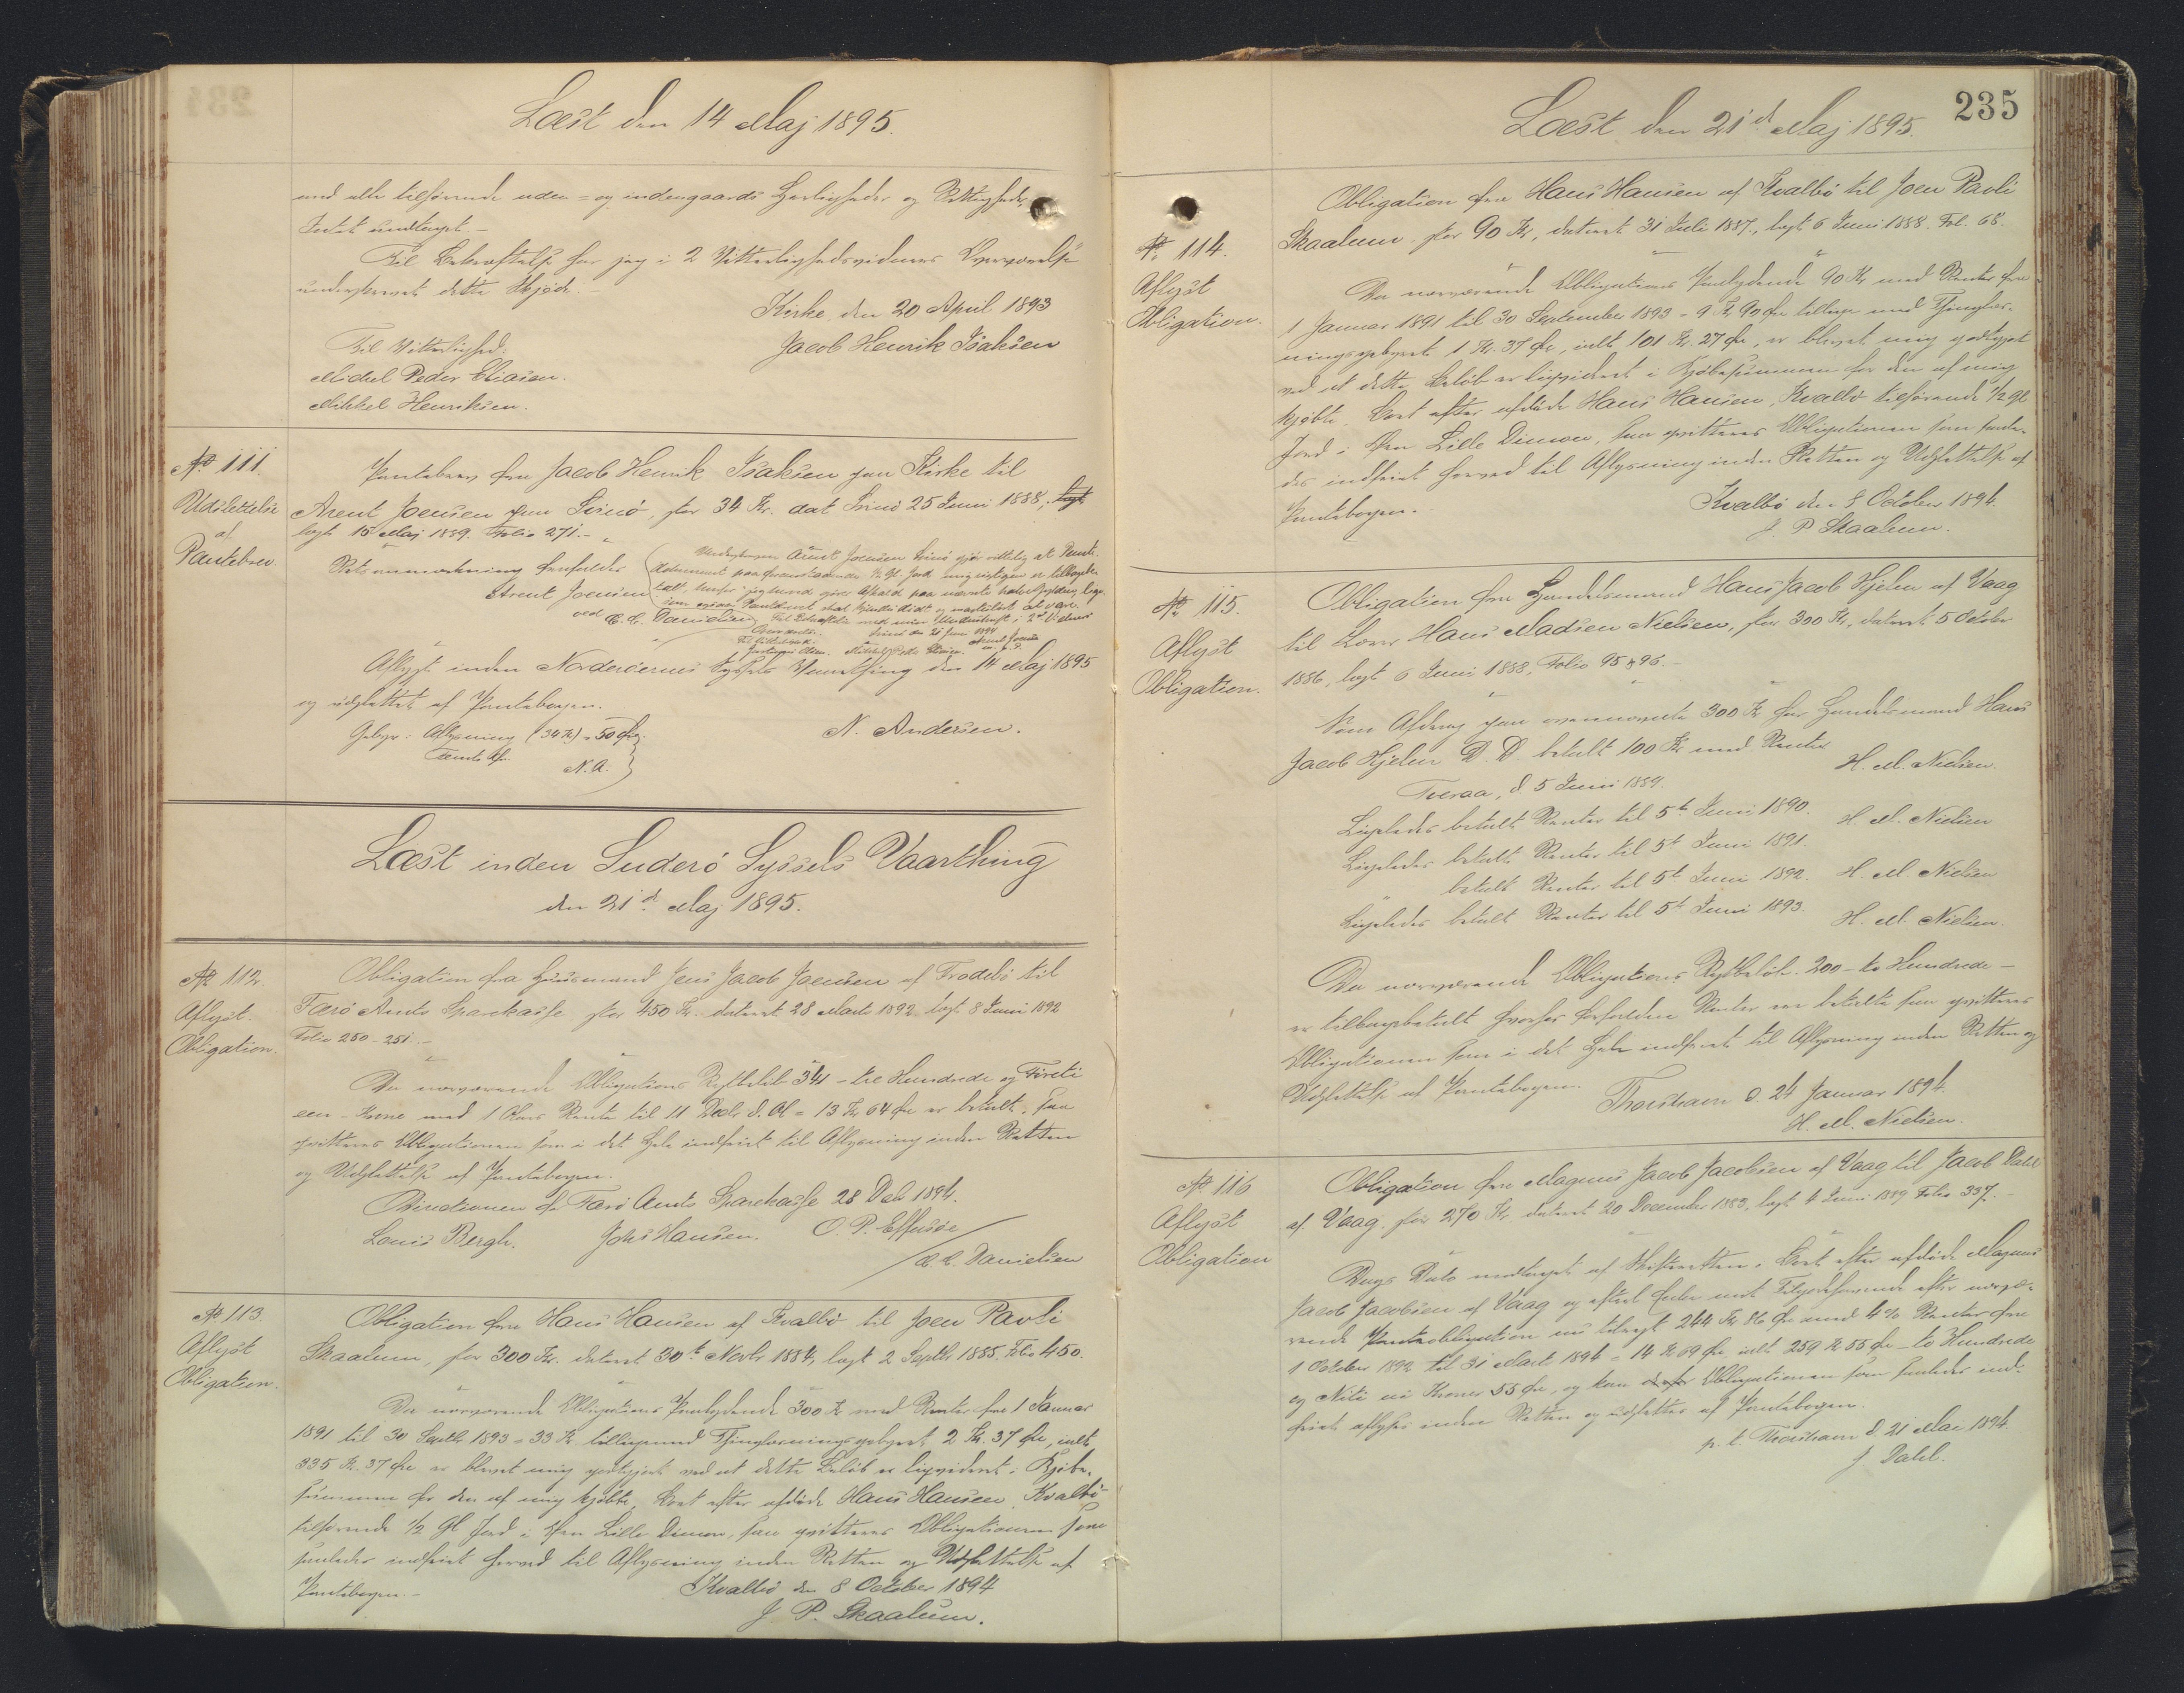 Læst den 14 Maj 1895.
med alle tilhørende uden= og indengaards Herligheder og Rettigheder
Intet undtaget.-
Til Bekræftelse har jeg i 2 Vitterlighedsvidners Overværelse
underskrevet dette Skjøde.-
Kirke, den 20 April 1893
Jacob Henrik Isaksen
Til Vitterlighed:
Michel Peder Eliasen.
Mikkel Henriksen.
No 111.
Udslettelse
af
Pantebrev.
Pantebrev fra Jacob Henrik Isaksen paa Kirke til
Arent Joensen paa Svinø, for 34 Kr. dat Svinø 25 Juni 1888, lagt
læst 15 Maj 1889. Folio 271.-
Retsanmærkning
Arent Joensen
ved E. C. Danielsen
Aflyst inden Norderøernes Syssels Vaarthing den 14 Maj 1895
og udslettet af Pantebogen.
N. Andersen.
Gebyr: Aflysning (34 Kr) = 50 Øre.
N. A.
Læst inden Suderø Syssels Vaarthing
den 21d Maj 1895.
No 112.
Aflyst.
Obligation.
Obligation fra Huusmand Jens Jacob Joensen af Frodebø til
Færø Amts Sparekasse for 450 Kr. dateret 28 Marts 1892 læst 8 Juni 1892
Folio 250-251.-
Da nærværende Obligations Restbeløb 341 - tre Hundrede og Firti
een - Krone med 1 Aars Rente til 11 Decbr d. A. = 13 Kr 64 Øre er betalt, saa
qvitteres Obligationen som i det Hele indfriet til Aflysning inden Retten
og Udslettelse af Pantebogen.
Directionen for Færø Amts Sparekasse 28 Deb 1894.
Louis Bergh. Johs Hansen. O. P. Effersøe
/ E. C. Danielsen
No 113.
Aflyst
Obligation.
Obligation fra Hans Hansen af Kvalbø til Joen Pavli
Skaalum, for 300 Kr. dateret 30t Novbr 1884, læst 2 Septbr 1885. Folio 450.
Da nærværende Obligations Paalydende 300 Kr med Renter fra 1 Januar
1891 til 30 Septbr 1893 = 33 Kr. tilligemed Thinglæsningsgebyret 2 Kr. 37 Øre, ialt
335 Kr. 37 Øre er blevet mig godtgjort ved at dette Beløb er liqvideret i Kjøbe-
summen for den af mig kjøbte, Boet efter afdøde Hans Hansen, Kvalbø
tilhørende 1/2 Gl. Jord i Øen Lille Dimon, saa qvitteres Obligationen som
saaledes indfriet herved til Aflysning inden Retten og Udslettelse af
Pantebogen.-
Kvalbø den 8 October 1894
J. P. Skaalum.
235
Læst den 21d Maj 1895.
No 114.
Aflyst
Obligation.
Obligation fra Hans Hansen af Kvalbø til Joen Pavli
Skaalum for 90 Kr, dateret 31 Juli 1887, læst 6 Juni 1888. Fol. 68.
Da nærværende Obligations Paalydende 90 Kr med Renter fra
1 Januar 1891 til 30 September 1893 - 9 Kr 90 Øre tillige med Thinglæs-
ningsgebyret 1 Kr. 37 Øre, ialt 101 Kr. 27 Øre, er blevet mig godtgjort
ved at dette Beløb er liqvideret i Kjøbesummen for den af mig
kjøbte, Boet efter afdøde Hans Hansen, Kvalbø tilhørende 1/2 Gl.
Jord i Øen Lille Dimon, saa qvitteres Obligationen som saale-
des indfriet herved til Aflysning inden Retten og Udslettelse af
Pantebogen.
Kvalbø den 8 October 1894.
J. P. Skaalum.
No 115.
Aflyst
Obligation.
Obligation fra Handelsmand Hans Jacob Hjelm af Vaag
til Hans Madsen Nielsen, for 300 Kr, dateret 5 October
1886, læst 6 Juni 1888, Folio 95 & 96.-
Som Afdrag paa ovennævnte 300 Kr har Handelsmand Hans
Jacob Hjelm D. D. betalt 100 Kr med Renter
Tveraa, d. 5 Juni 1889.
H. M. Nielsen.
Ligeledes betalt Renter til 5t Juni 1890.
H. M. Nielsen
Ligeledes betalt Renter til 5t Juni 1891.
" betalt Renter til 5t Juni 1892.
H. M. Nielsen
Ligeledes betalt Renter til 5t Juni 1893.
H. M. Nielsen.
Da nærværende Obligations Restbeløb 200 - to Hundrede -
er tilbagebetalt hvorfor forfaldne Renter ere betalte saa qvitteres
Obligationen som i det Hele indfriet til Aflysning inden Retten og
Udslettelse af Pantebogen.
Thorshavn d. 24 Januar 1894.
H. M. Nielsen.
No 116
Aflyst
Obligation
Obligation fra Magnus Jacob Jacobsen af Vaag til Jacob Dahl
af Vaag for 270 Kr dateret 20 December 1883, læst 4 Juni 1889 Folio 337.-
Dags Dato modtaget af Skifteretten i Boet efter afdøde Magnus
Jacob Jacobsen af Vaag og efter nærvæ-
rende Panteobligation 244 Kr 86 Øre med 4% Renter fra
1 October 1892 til 31 Marts 1894 = 14 Kr 69 Øre ialt 259 Kr 55 Øre - to Hundrede
og Niti ni Kroner 55 Øre, og kan derfor Obligationen som saaledes ind-
friet aflyses inden Retten og udslettes af Pantebogen.
p. t. Thorshavn d. 21 Mai 1894.
J. Dahl.